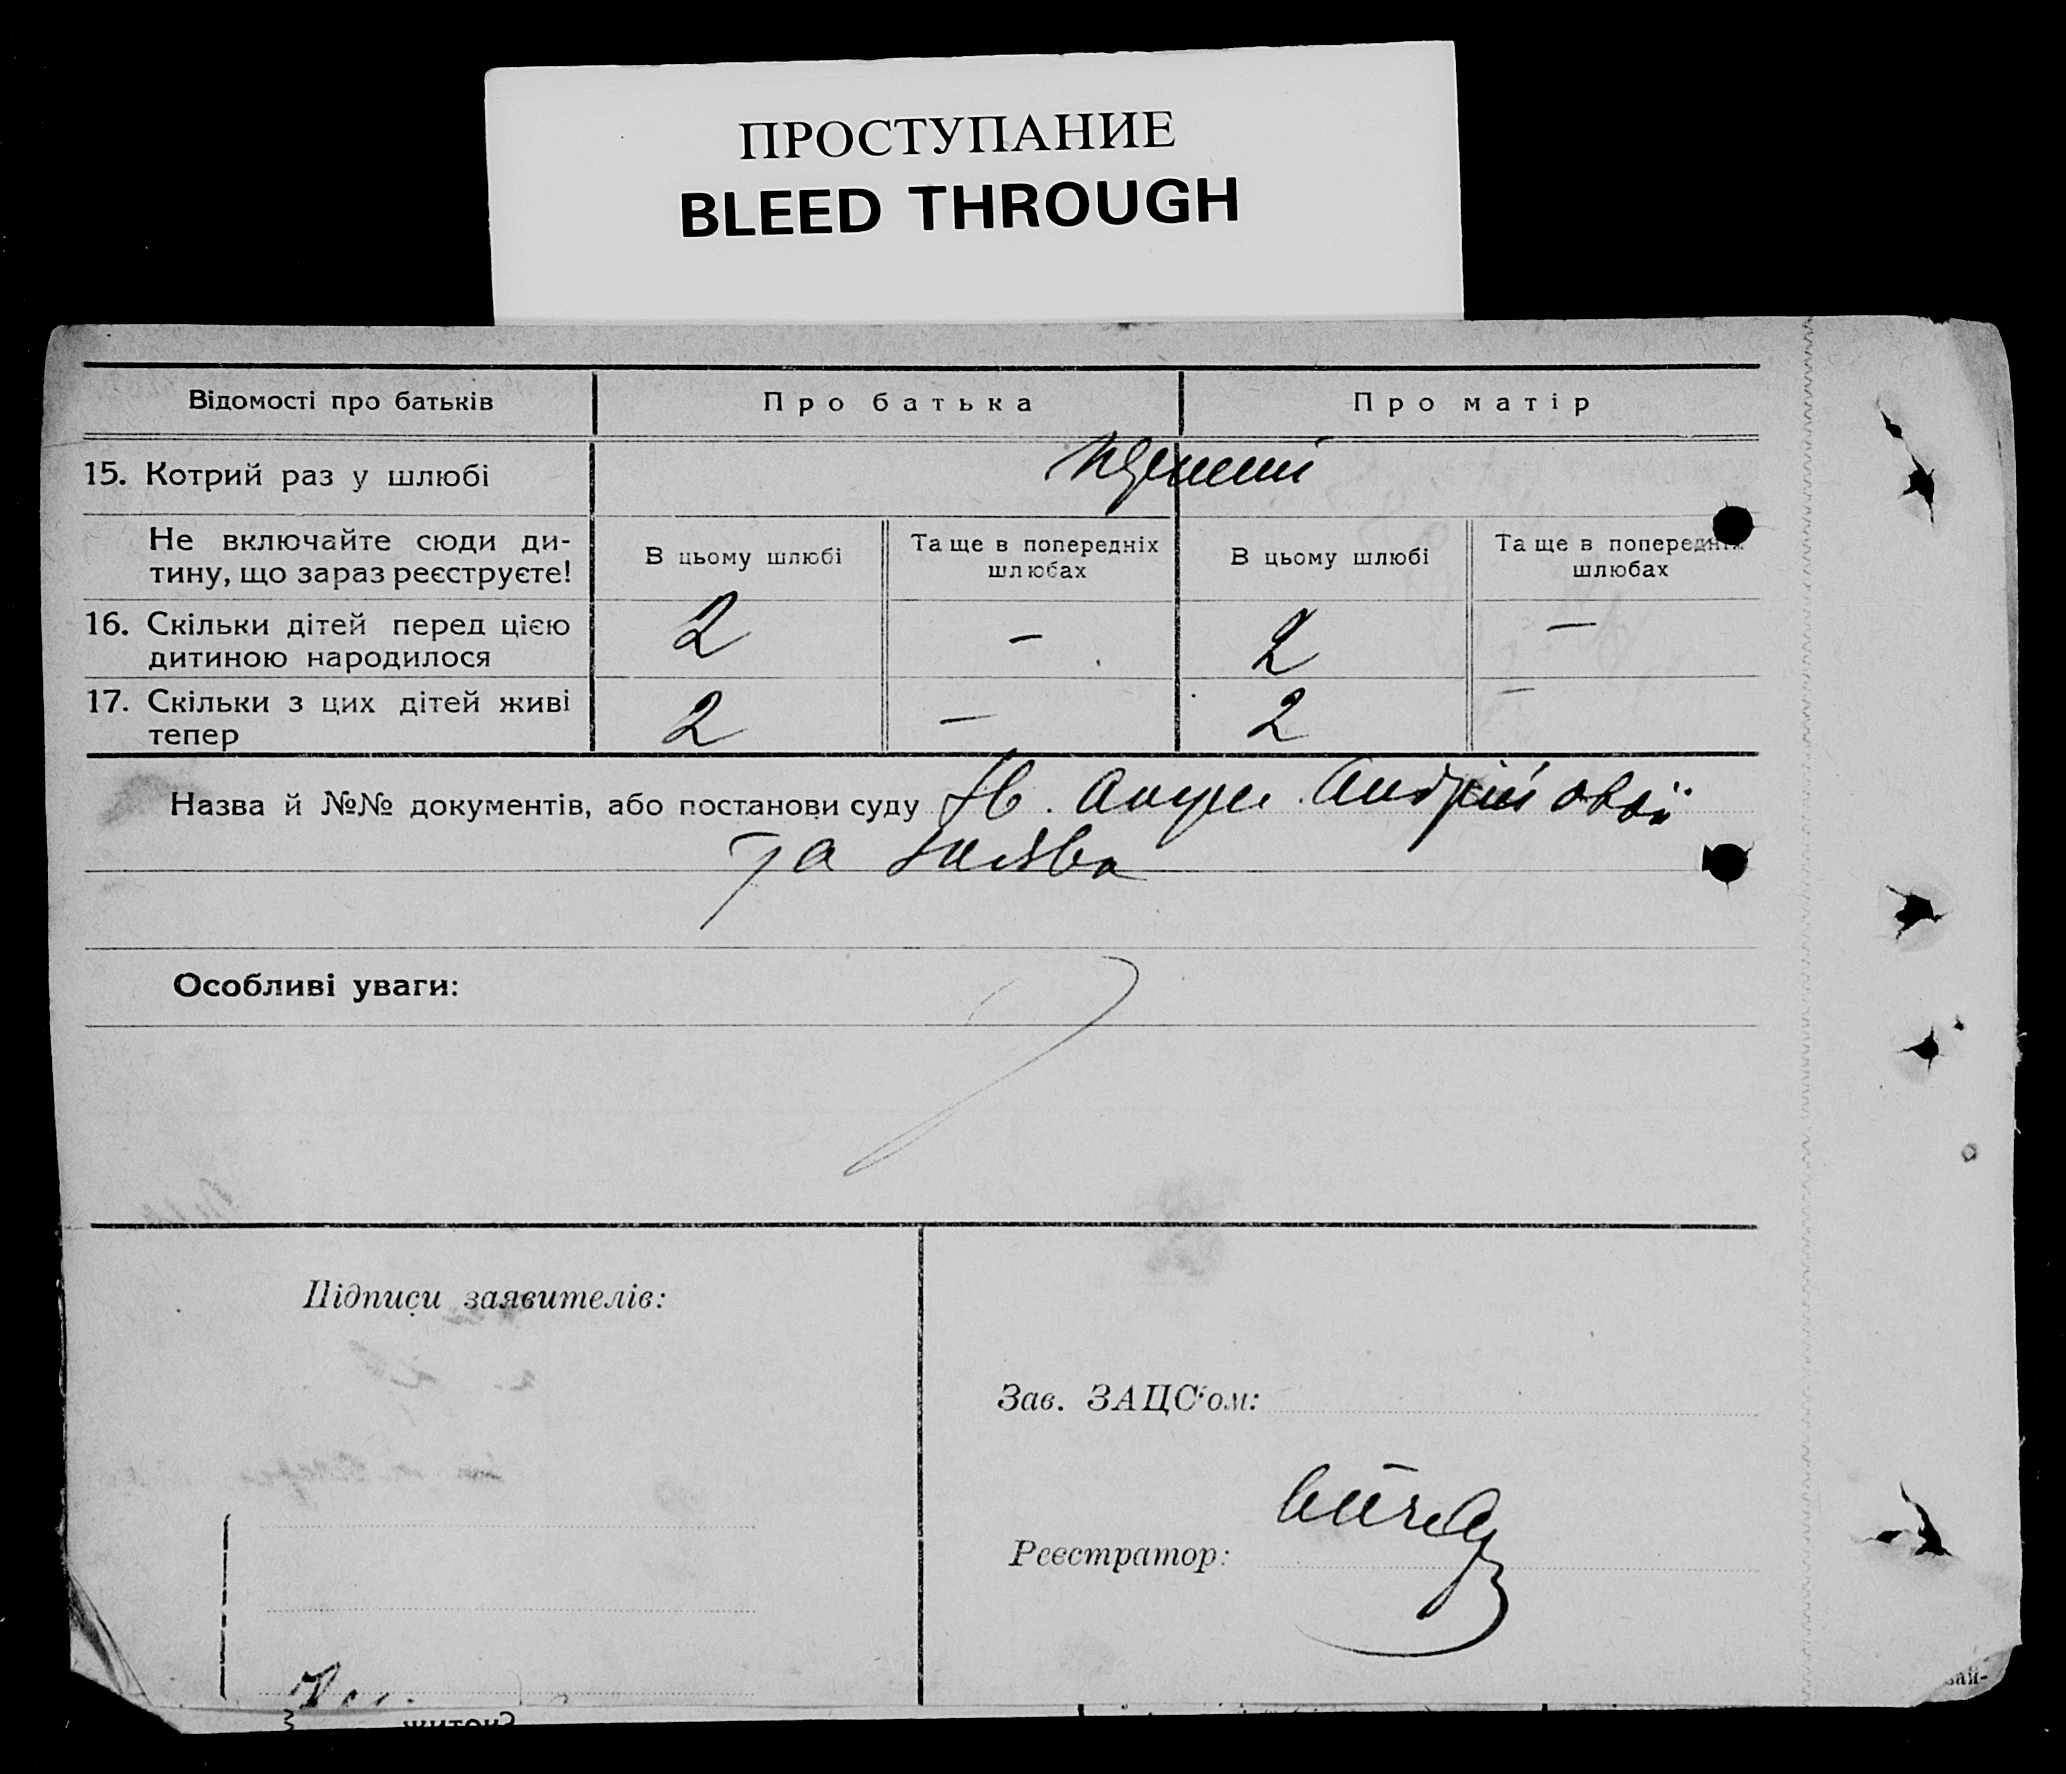 ПРОСТУПАНИЕ
BLEED THROUGH
Відомості про батьків
Про батька
Про матір
15. Котрий раз у шлюбі
Не включайте сюди ди-
тину, що зараз реєструєте!
В цьому шлюбі
Та ще в попередніх
шлюбах
В цьому шлюбі
Та ще в попередніх
шлюбах
16. Скільки дітей перед цією
дитиною народилося
2
–
2
–
17. Скільки з цих дітей живі
тепер
2
–
2
–
Назва й №№ документів, або постанови суду
та заява
Особливі уваги:
Підписи заявителів:
Зав. ЗАЦС'ом:
Реєстратор: